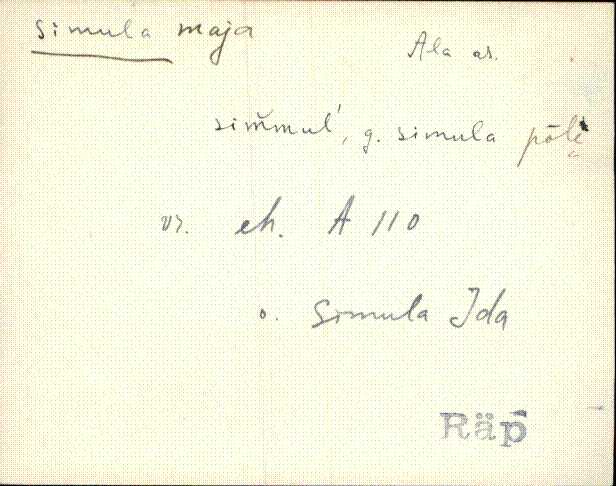 simula maja
Ala as.
sim̆mul', g. simula
vr. eh. A 110
o. Simula Ida
Räp